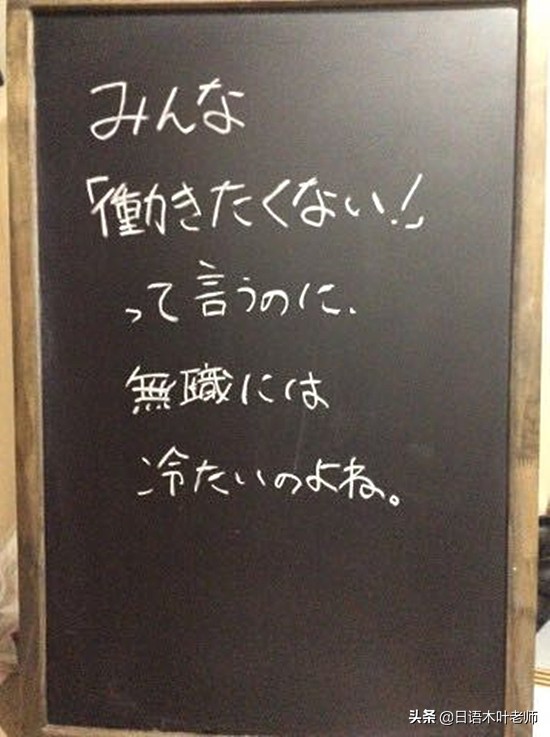 みんな
「働きたくない!」
って言うのに、
無職には
冷たいのよね。
头条 @日语木叶老师